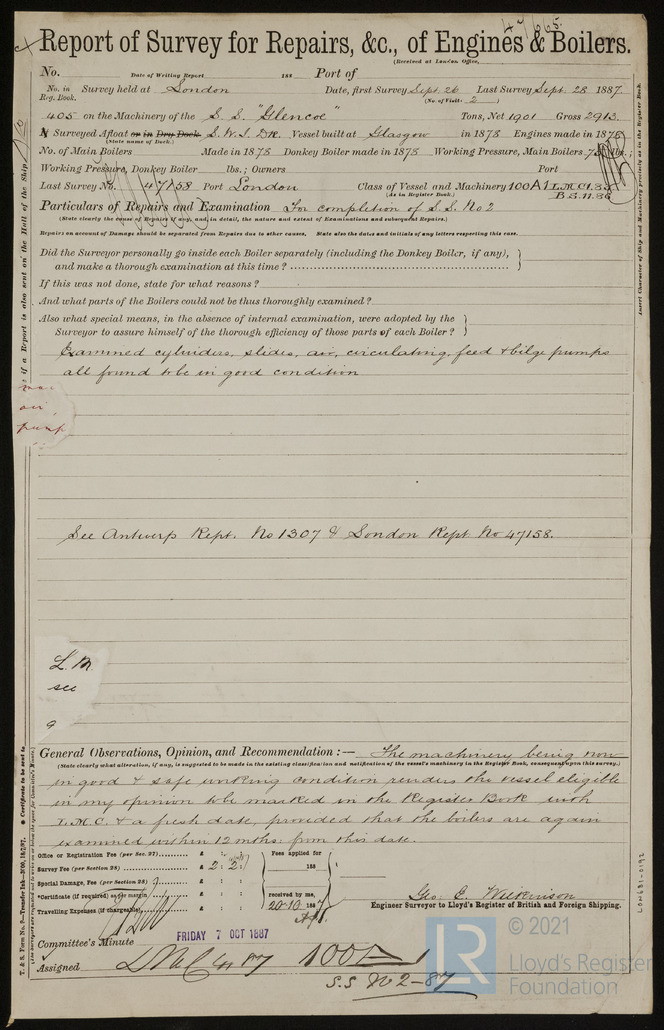 47665.
Report of Survey for Repairs, &c., of Engines & Boilers.
(Received at London Office,
No. Date of Writing Report 188 Port of
No. in Reg. Book. Survey held at London Date, first Survey Sept. 26 Last Survey Sept. 28 1887.
(No. of Visits 2)
405 on the Machinery of the S. S. "Glencoe" Tons, Net 1901 Gross 2913
Surveyed Afloat or in Dry Dock S. W. I. Dk. Vessel built at Glasgow in 1878 Engines made in 1878
(State name of Dock.)
No. of Main Boilers Made in 1878 Donkey Boiler made in 1878 Working Pressure, Main Boilers lbs.;
Working Pressure, Donkey Boiler lbs.; Owners Port
Last Survey No. 47158 Port London Class of Vessel and Machinery 100A1 L.M.C.
(As in Register Book.) B.S. 11.86
Particulars of Repairs and Examination For completion of S.S. No 2
(State clearly the cause of Repairs if any, and, in detail, the nature and extent of Examinations and subsequent Repairs.)
Repairs on account of Damage should be separated from Repairs due to other causes. State also the dates and initials of any letters respecting this case.
Did the Surveyor personally go inside each Boiler separately (including the Donkey Boiler, if any),
and make a thorough examination at this time?
If this was not done, state for what reasons?
And what parts of the Boilers could not be thus thoroughly examined?
Also what special means, in the absence of internal examination, were adopted by the
Surveyor to assure himself of the thorough efficiency of those parts of each Boiler?
Examined cylinders, slides, air, circulating, feed & bilge pumps
all found to be in good condition
air
pump
See Antwerp Rept. No 1307 & London Rept No 47158.
L. M.
see
General Observations, Opinion, and Recommendation:— The machinery being now
(State clearly what alteration, if any, is suggested to be made in the existing classification and notification of the vessel's machinery in the Register Book, consequent upon this survey.)
in good & safe working condition renders the vessel eligible
in my opinion to be marked in the Register Book with
L.M.C. & a fresh date, provided that the boilers are again
examined within 12 mths: from this date.
Office or Registration Fee (per Sec. 27) £ : :
Survey Fee (per Section 28) £ 2 : 2 :
Special Damage, Fee (per Section 28) £ : :
*Certificate (if required) as per margin : :
Travelling Expenses (if chargeable) £ : :
Fees applied for
188
received by me,
20.10.1887
Geo. E. Wilkinson
Engineer Surveyor to Lloyd's Register of British and Foreign Shipping.
Committee's Minute FRIDAY 7 OCT 1887
Assigned LMC 4.87 100A1
S.S No 2-87
Insert Character of Ship and Machinery precisely as in the Register Book.
if a Report is also sent on the Hull of the Ship
T. & S. Form No. 8.—Transfer Ink.
* Certificate to be sent to
LR
© 2021
Lloyd's Register
Foundation